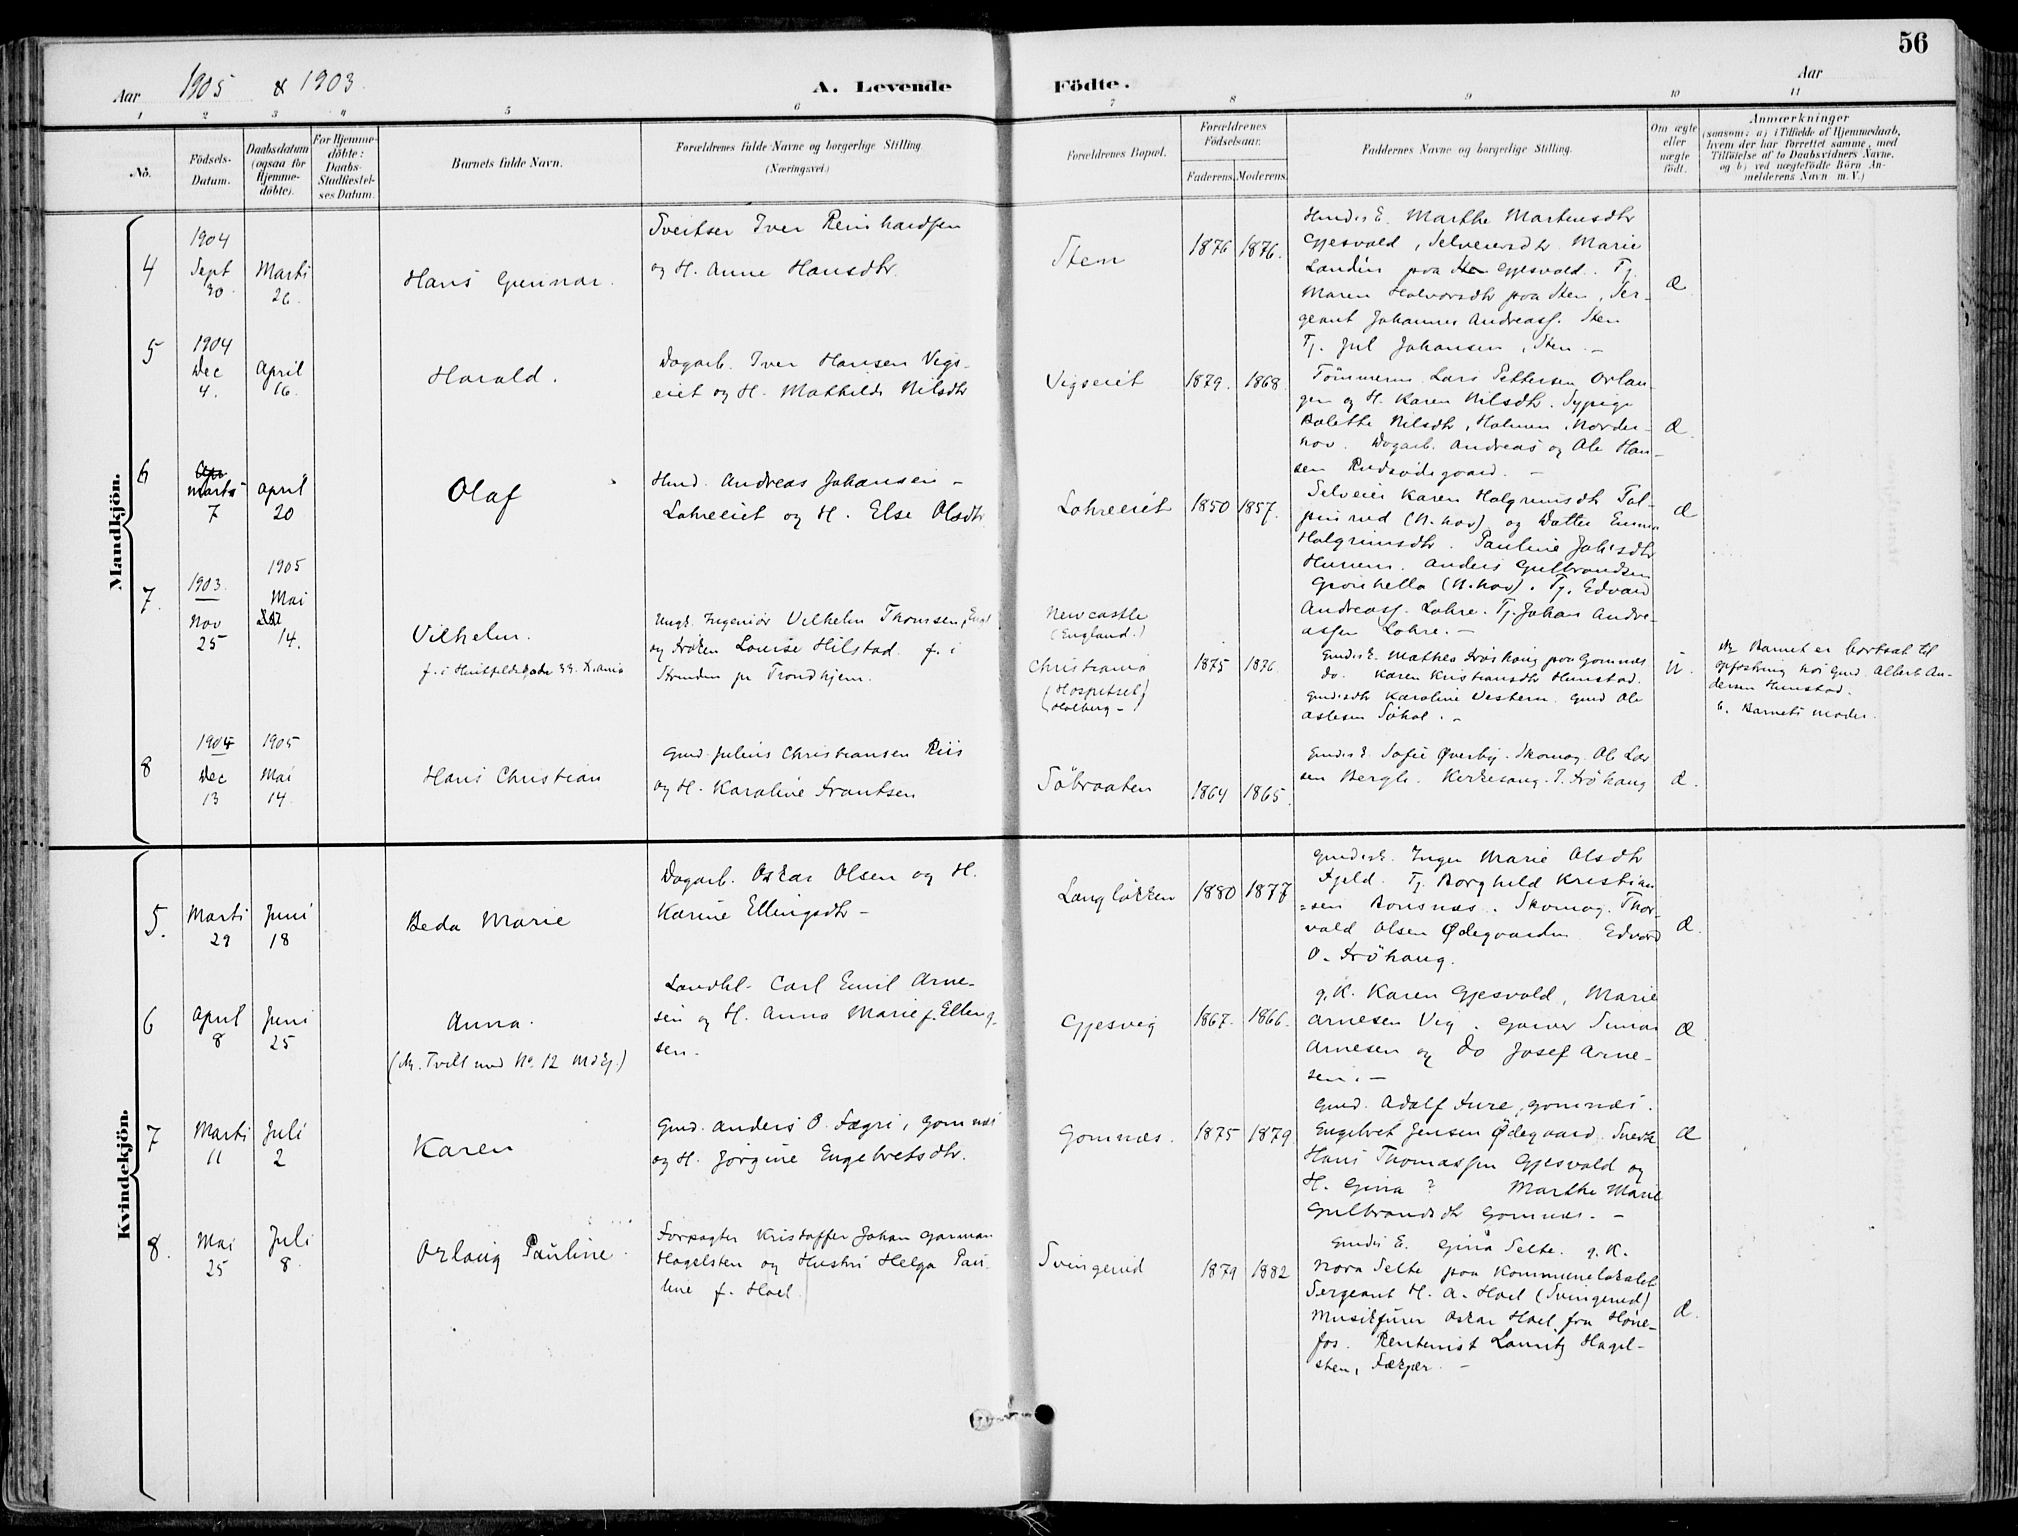 56
Aar 1905 & 1903.
A. Levende Födte.
Aar
1 2 3 4 5 6 7 8 9 10 11
No.
Födsels-Datum.
Daabsdatum (ogsaa for Hjemme-döbte).
For Hjemme-döbte: Daabs-Stadfæstel-ses Datum.
Barnets fulde Navn.
Forældrenes fulde Navne og borgerlige Stilling (Næringsvei.)
Forældrenes Bopæl.
Forældrenes Födselsaar.
Faderens. Moderens.
Faddernes Navne og borgerlige Stilling.
Om ægte eller uægte födt.
Anmærkninger
(saasom: a) i Tilfælde af Hjemmedaab, hvem der har forrettet samme, med Tilföielse af to Daabsvidners Navne, og b) ved uægtefödte Börn An-melderens Navn m. V.)
Mandkjön.
4
1904 Sept 30.
Marts 26.
Hans Gunnar.
Sveitser Iver Reinhardsen
og H. Anne Hansdtr.
Sten
1876 1876.
Husds E. Marthe Martensdtr
Gjesvald, Marie
Landén paa Gjesvald. Tj.
Maren Halvorsdtr paa Sten, Ser-
geant Johannes Andreass. Sten
Tj. Jul Johansen, Sten. -
Æ
5
1904 Dec 4.
April 16.
Harald.
Dagarb. Iver Hansen Vigs-
eiet og H. Mathilde Nilsdtr
Vigseiet
1879. 1868.
Tömmerm. Lars Pettersen Orlan-
gen og H. Karen Nilsdtr. Sypige
Bolette Nilsdtr, Holmen, Norder-
hov. Dagarb. Andreas og Ole Han-
sen Rudsödegaard. -
Æ.
6
Marts 7
April 20
Olaf
Husd. Andreas Johansen -
Lohreeiet og H. Else Olsdtr.
Lohreeiet
1850 1857.
Selveier Karen Halgrimsdtr
(N.hov) og Datter Emma
Halgrimsdtr. Pauline Johsdtr
Hurum. Anders Gulbrandsen
(N.hov). Tj. Edvard
Andreass. Lohre. Tj. Johan Andre-
assen Lohre. -
Æ
7.
1903. Nov 25
1905 Mai 14.
Vilhelm.
f. i Huitfeldtsgade 33. Kr.ania
Ungk. Ingeniör Vilhelm Thomssen, Engl
og Fröken Louise Hilstad f. i
Strinden pr Trondhjem.
Newcastle
(England.)
Christiania
(Hospitset)
(Holberg-)
1875 1876.
Gmds E. Mathea Fröshaug paa Gomnæs
do. Karen Kristiansdtr Hunstad.
Gmdsdtr Karoline Vestern. Gmd Ole
Aslesen Söhol. -
U.
Barnet er bortsat til
opfostring hos Gmd. Albert An-
dersen Hunstad.
b. Barnets moder.
8
1904 Dec 13
1905 Mai 14.
Hans Christian
Gmd. Julius Christiansen Riis
og H. Karoline Frantsen
Söbraaten
1864 1865.
Gmds E. Sofie Överby. Skomag. Ole Lar-
sen Bergli. Kirkesang. P. Fröhaug
Æ.
Kvindekjön.
5.
Marts 29
Juni 18
Beda Marie
Dagarb. Oskar Olsen og H.
Karine Ellingsdtr -
Langlökken
1880 1877
Gmds E. Inger Marie Olsdtr
Fjeld. Tj. Borghild Kristian
=sen Bonsnæs. Skomag. Thor-
vald Olsen Ødegaarden Edvard
O. Fröhaug.
Æ.
6
April 8
Juni 25
Anna.
(Tvill med No. 12 Mdkj.)
Landhl. Carl Emil Arne-
sen og H. Anna Marie f. Elling-
sen.
Gjesvig
1867. 1866.
g.K. Karen Gjesvald, Marie
Arnesen Vig. Garver Simon
Arnesen og do Josef Arne-
sen. -
Æ.
7
Marts 11
Juli 2
Karen
Gmd. Anders O. Fægri, Gomnæs
og H. Jörgine Engebretsdtr.
Gomnæs.
1875 1879
Gmd. Adolf Fure, Gomnæs.
Engebret Jensen Ödegaard. Snedk
Hans Thomassen Gjesvald og
H. Gina ? Marthe Marie
Gulbrandsdtr Gomnæs. -
Æ
8.
Mai 25
Juli 8.
Orlaug Pauline.
Forpagter Kristoffer Johan Garman
Hagelsten og Hustru Helga Pau-
line f. Hoel
Svingerud
1879 1882
Gmds E. Gina Selte. g.K.
Nora Selte paa Kommunelokalet
Sergeant H. A. Hoel (Svingerud)
Musikfurer Oskar Hoel fra Høne-
fos. Rentenist Lauritz Hagel-
sten, -
Æ.